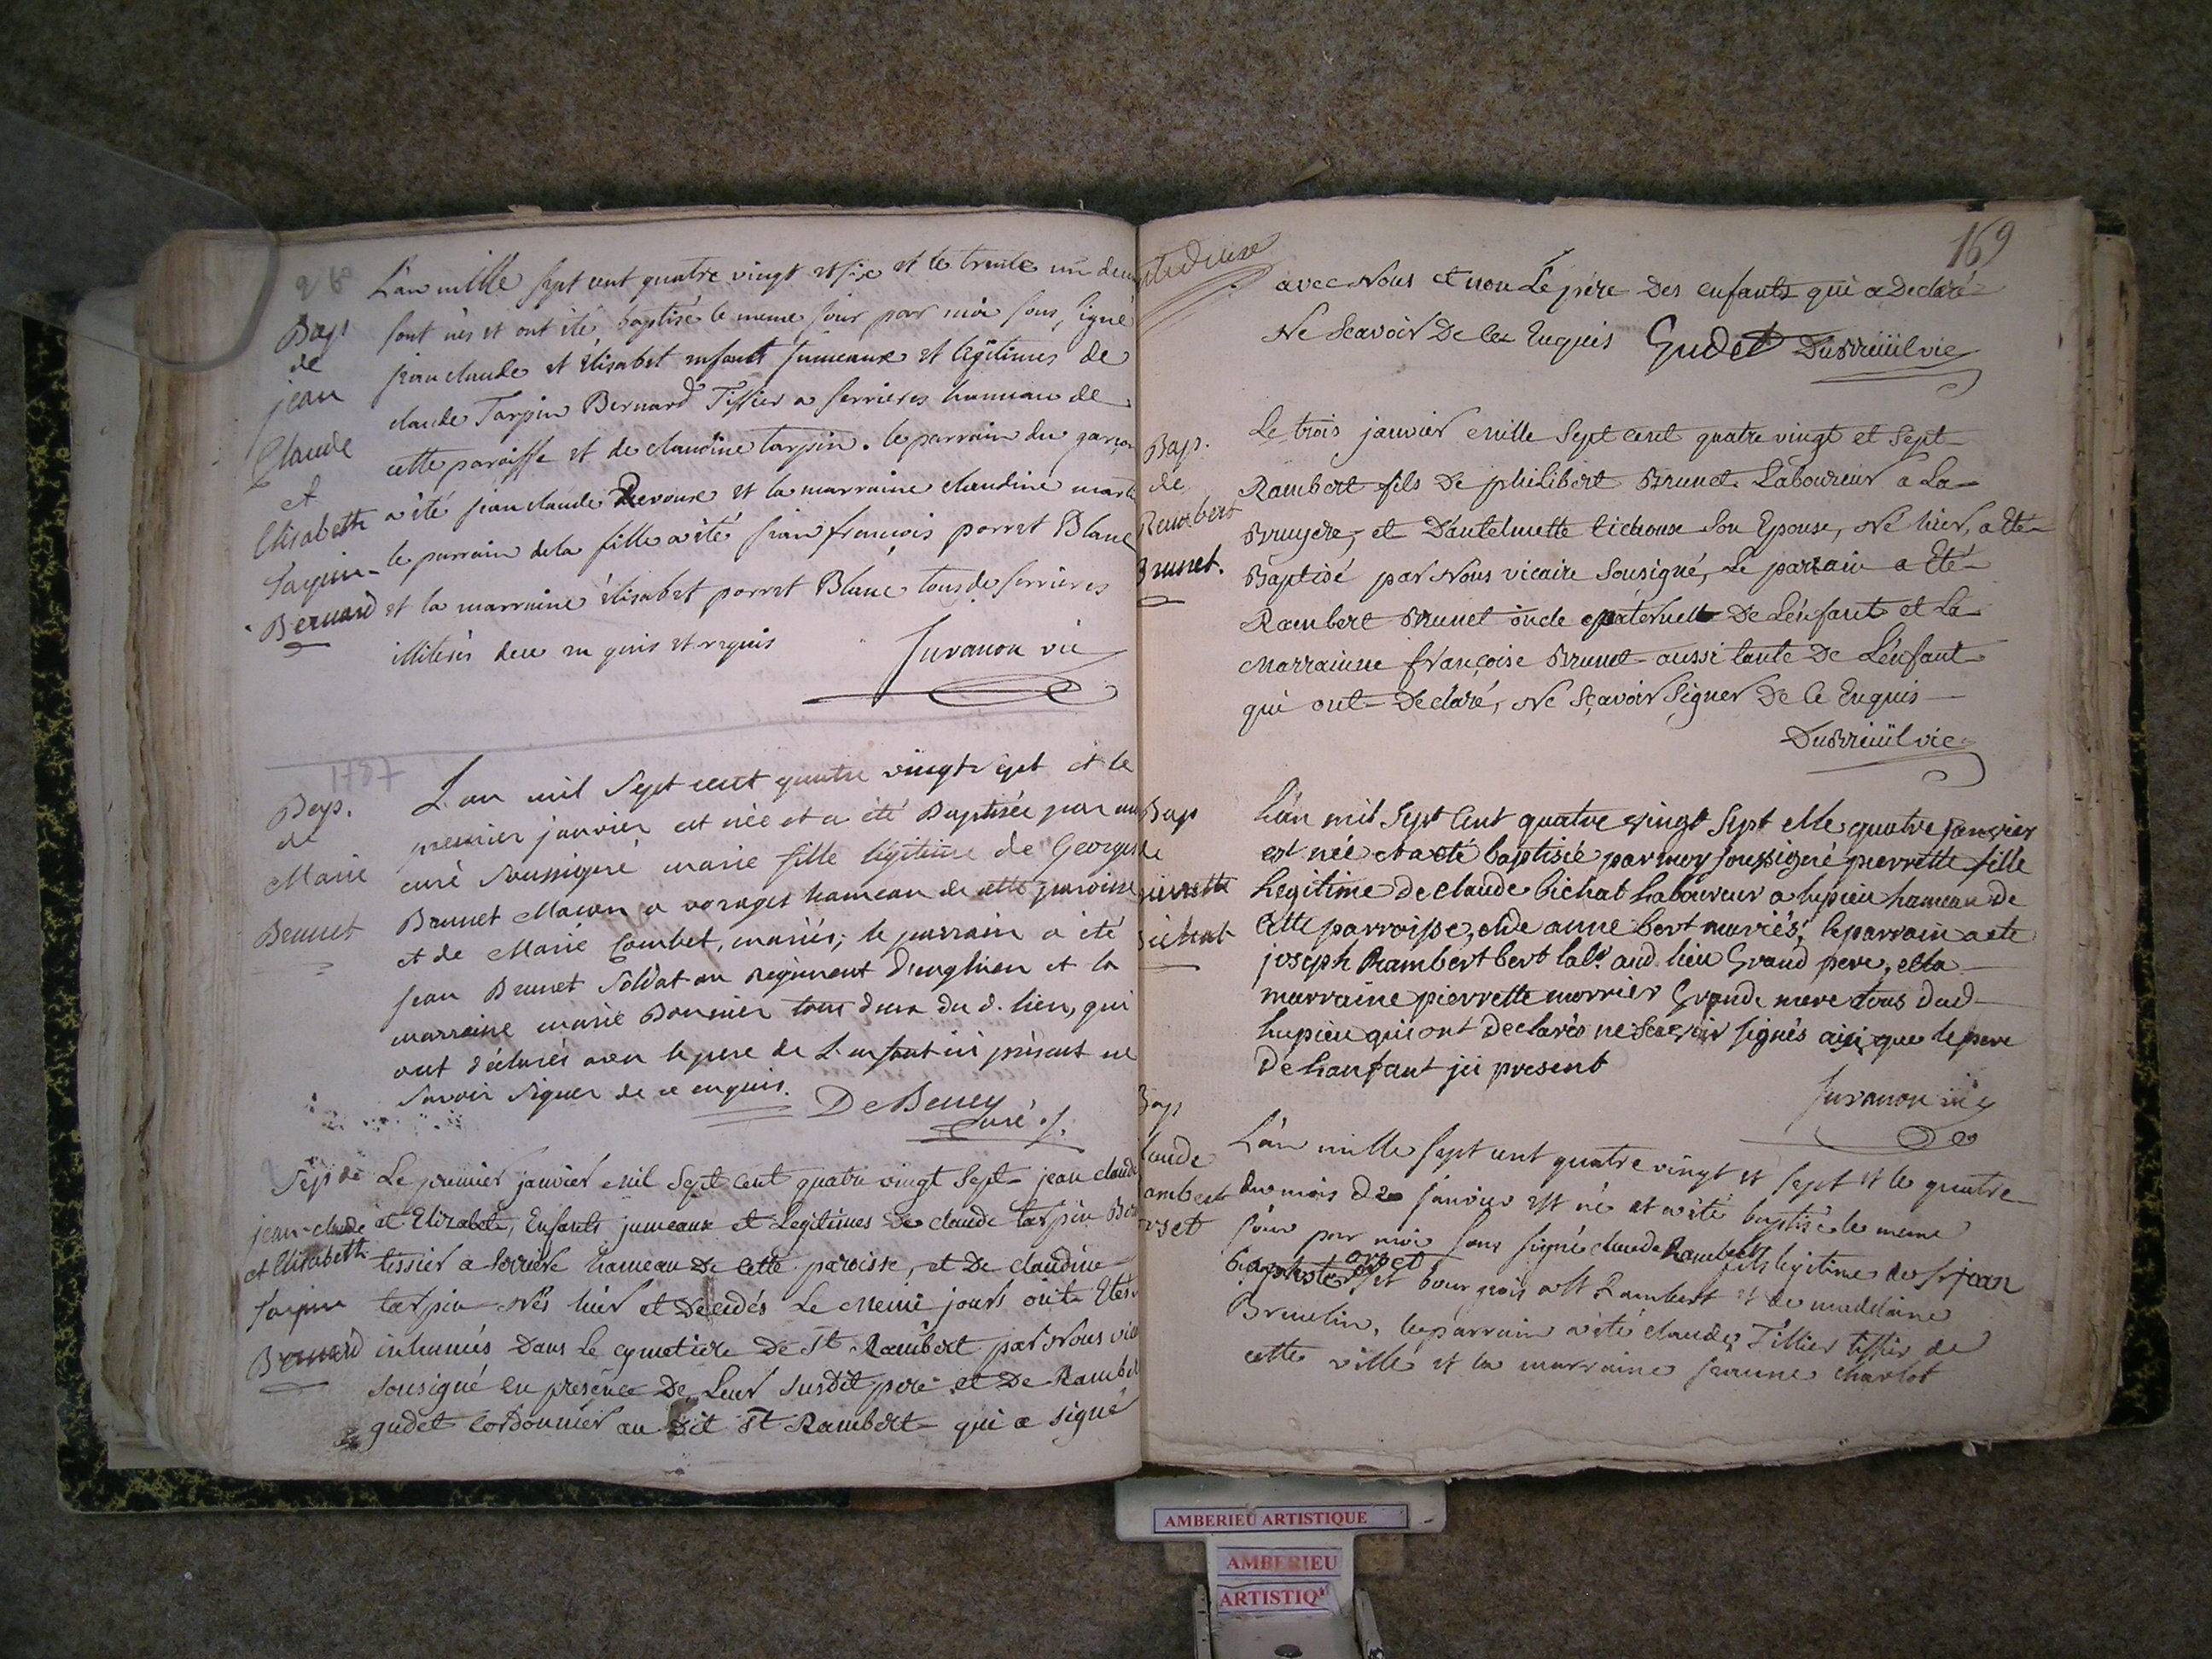 98
Bap.
de
jean
Claude
et
Elisabeth
Tarpin
Bernard
L'an mille sept cent quatre vingt et six et le trente un
sont nés et ont été baptisé le meme jour par moi sous signé
jean claude et élisabet enfants jumeaux et légitimes de
claude Tarpin Bernard Tissier a serrieres hameau de
cette paroisse et de claudine tarpin. le parrain du garçon
a été jean claude Devoux et la marraine claudine
le parrain de la fille a été jean françois porret Blanc
et la marraine élisabet porret Blanc tous de serrieres
illiterés de ce en quis et requis
Juvanon vic
1787
Bap.
de
Marie
Brunet
L'an mil sept cent quatre vingt sept et le
premier janvier est née et a été Baptisée par
curé soussigné marie fille légitime de Georges
Brunet Maçon a vorages hameau de cette paroisse
et de Marie Combet, mariés; le parrain a été
jean Brunet soldat au régiment d'enghien et la
marraine marie Bonnier tous deux du d. lieu, qui
ont déclarés avec le pere de L'enfant ici présent ne
savoir signer de ce enquis.
DeBeney
curé
Sep de
jean-claude
et Elisabeth
Tarpin
Bernard
Le premier janvier mil Sept cent quatre vingt Sept jean claude
et Elizabete, Enfants jumeaux et Legitimes de claude tarpin
tissier a Serriere hameau De Cette paroisse, et De claudine
tarpin Nés hier et Décédés Le Meme jours ont Etés
inhumés Dans Le Cymetiere De St Rambert par Nous
sousigné en presence De Leur susdit pere et De
gudet Cordonnier au dit St Rambert qui a signé
169
avec Nous et non Le pére Des enfants qui a Declaré
Ne Scavoir De ce Enquis Gudet Dubreüil vic
Bap.
de
Rambert
Brunet.
Le trois janvier mille Sept cent quatre vingt et Sept
Rambert fils De philibert Brunet Laboureur a La
Bruyere, et D'antelmette tichoux Son Epouse, Né hier, a Eté
Baptisé par Nous vicaire Sousigné, Le parrain a Eté
Rambert Brunet oncle paternell De L'enfant et La
Marrainne françoise Brunet aussi tante De L'enfant
qui ont Declaré, Ne Sçavoir Signer De Ce Enquis
Dubreüil vic
Bap
de
pierrette
Bichat
L'an mil Sept Cent quatre vingt Sept et le quatre janvier
est née et a eté baptisée par moy soussigné pierrette fille
Legitime de claude bichat Laboureur a lupieu hameau de
Cette parroisse, et de anne bert mariés, le parrain a ete
joseph Rambert bert labr. aud. lieu Grand pere, et la
marraine pierrette morrier Grande mere tous dud
lupieu qui ont declarés ne Scavoir signés aisi que le pere
De Lanfant ici present
Juvanon vic
Bap
Claude
Rambert
orset
L'an mille sept cent quatre vingt et sept et le quatre
du mois de janvier est né et a été baptisé le meme
jour par moi sous signé claude Rambert fils légitime de sr jean
baptiste orset bourgeois a st Rambert et de madelaine
Brucelin, le parrain a été claude Tillier tissier de
cette ville et la marraine jeanne charlot
AMBERIEU ARTISTIQUE
AMBERIEU
ARTISTIQ